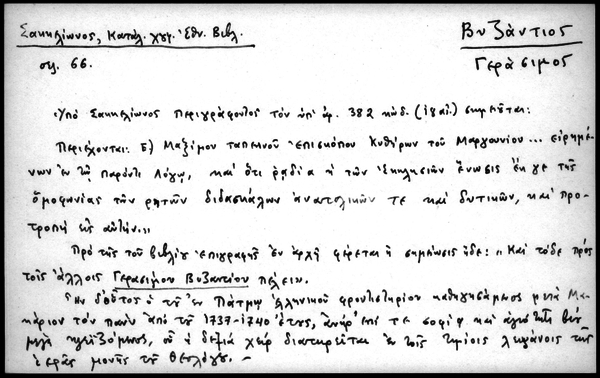 Σακκελίωνος, Κατάλ. χγφ. Ἐθν. Βιβλ.
Βυζάντιος
σελ. 66.
Γεράσιμος
Ὑπὸ Σακκελίωνος περιγράφοντος τὸν ὑπ' ἀρ. 382 κώδ. (ι8 αἰ.) σημειοῦται:
Περιέχονται: 5) Μαξίμου ταπεινοῦ ἐπισκόπου Κυθήρων τοῦ Μαργουνίου... εἰρημέ-
νων ἐν τῷ παρόντι λόγῳ, καὶ ὅτι ῥᾳδία ἡ τῶν ἐκκλησιῶν ἕνωσις ἐκ γε τῆς
ὁμοφωνίας τῶν ῥητῶν διδασκάλων ἀνατολικῶν τε καὶ δυτικῶν, καὶ προ-
τροπὴ εἰς αὐτήν...
Πρὸ τῆς τοῦ βιβλίου ἐπιγραφῆς ἐν ἀρχῇ φέρεται ἡ σημείωσις ἥδε: «Καὶ τόδε πρὸς
τοῖς ἄλλοις Γερασίμου Βυζαντίου πέλει».
Ἦν δ' οὗτος ὁ τοῦ ἐν Πάτμῳ ἑλληνικοῦ φροντιστηρίου καθηγησάμενος μετὰ Μα-
κάριον τὸν πάνυ ἀπὸ τοῦ 1737-1740 ἔτους, ἀνὴρ ἐπί τε σοφίᾳ καὶ ἁγιότητι βίου
μέγα κλεϊζόμενος, οὗ ἡ δεξιὰ χεὶρ διατηρεῖται ἐν τοῖς τιμίοις λειψάνοις τῆς
ἱερᾶς μονῆς τοῦ Θεολόγου. -